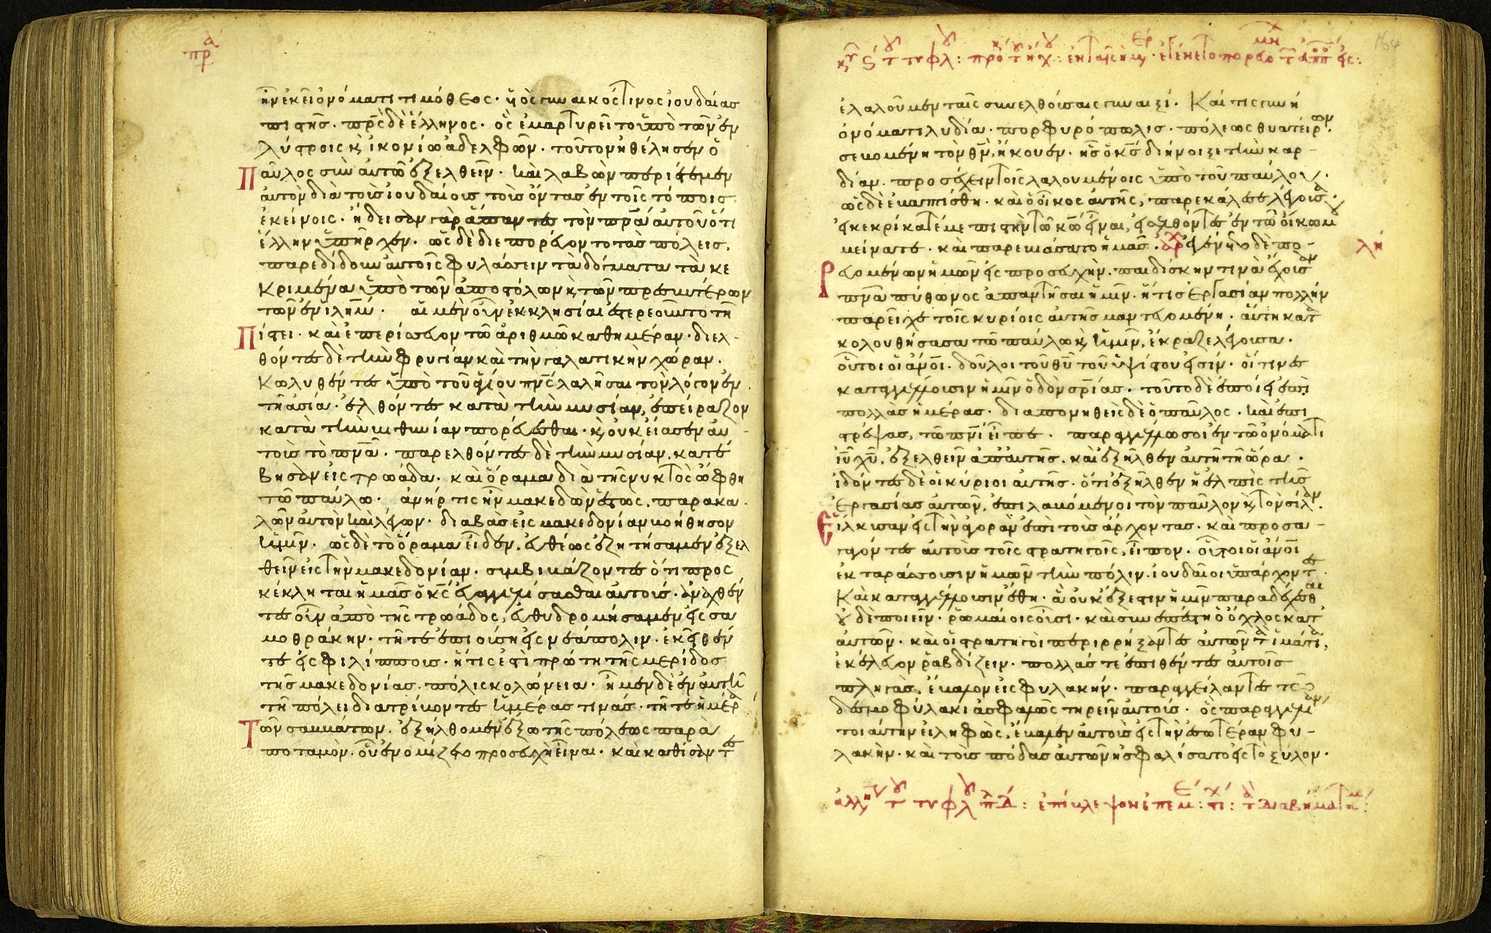 πρα
ἦν ἐκεῖ ὀνόματι τιμόθεος· υἱὸς γυναικός τινος ἰουδαίας
πιστῆς· πρς δὲ ἕλληνος· ὃς ἐμαρτυρεῖτο ὑπὸ τῶν ἐν
λύστροις κ ἰκονίω ἀδελφῶν· τοῦτον ἠθέλησεν ὁ
Παῦλος σὺν αὐτῶ ἐξελθεῖν· καὶ λαβὼν περιέτεμεν
αὐτὸν διὰ τοὺς ἰουδαίους τοὺς ὄντας ἐν τοῖς τόποις
ἐκείνοις· ἤδεισαν γὰρ ἅπαντες τὸν πρα αὐτοῦ ὅτι
ἕλλην ὑπῆρχεν· ὡς δὲ διεπορεύοντο τὰς πόλεις,
παρεδίδουν αὐτοῖς φυλάσσειν τὰ δόγματα τὰ κε
κριμένα ὑπὸ τῶν ἀποστόλων κ τῶν πρεσβυτέρων
τῶν ἐν ιλημ· αἱ μὲν οὖν ἐκκλησίαι ἐστερεοῦντο τῆ
Πίστει· καὶ ἐπερίσσευον τῶ ἀριθμῶ καθημέραν· διελ
θόντες δὲ τὴν φρυγίαν καὶ τὴν γαλατικὴν χώραν·
Κωλυθέντες ὑπὸ τοῦ ἁγίου πνς λαλῆσαι τὸν λόγον ἐν
τῆ ἀσία· ἐλθόντες κατὰ τὴν μυσίαν, ἐπείραζον
κατὰ τὴν βιθυνίαν πορεύεσθαι· κ οὐκ εἴασεν αὐ
τοὺς τὸ πνα· παρελθόντες δὲ τὴν μυσίαν, κατέ
βησαν εἰς τρωάδα· καὶ ὅραμα διὰ τῆς νυκτὸς ὤφθη
τῶ παύλω· ἀνήρ τις ἦν μακεδὼν ἑστὼς, παρακα
λῶν αὐτὸν καὶ λέγων· διαβὰς εἰς μακεδονίαν βοήθησον
ἡμῖν· ὡς δὲ τὸ ὅραμα εἶδεν, εὐθέως ἐζητήσαμεν ἐξελ
θεῖν εἰς τὴν μακεδονίαν· συμβιβάζοντες ὅτι προς
κέκληται ἡμᾶς ὁ κς εὐαγγελίσασθαι αὐτούς· ἀναχθέν
τες οὖν ἀπὸ τῆς τρωάδος, εὐθυδρομήσαμεν εἰς σα
μοθράκην· τῆ τε ἐπιούση εἰς νεάπολιν· ἐκεῖθέν
τε εἰς φιλίππους· ἥτις ἐστὶ πρώτη τῆς μερίδος
τῆς μακεδονίας πόλις κολώνεια· ἦμεν δὲ ἐν αὐτῆ
τῆ πόλει διατρίβοντες ἡμέρας τινάς· τῆ τε ἡμέρα
Τῶν σαββάτων· ἐξήλθομεν ἔξω τῆς πόλεως παρὰ
ποταμὸν· οὗ ἐνομίζετο προσευχὴ εἶναι· καὶ καθίσαντες
ἐλαλοῦμεν ταῖς συνελθούσαις γυναιξί· Καί τις γυνὴ
ὀνόματι λυδία· πορφυρόπωλις· πόλεως θυατείρων
σεβομένη τὸν θν, ἤκουεν· ἧς ὁ κς διήνοιξε τὴν καρ
δίαν· προσέχειν τοῖς λαλουμένοις ὑπὸ τοῦ παύλου·
ὡς δὲ ἐβαπτίσθη· καὶ ὁ οἶκος αὐτῆς, παρεκάλεσε λέγουσα·
εἰ κεκρίκατέ με πιστὴν τῶ κω εἶναι, εἰσελθόντες ἐν τῶ οἴκω μου
μείνατε· καὶ παρεβιάσατο ἡμᾶς· ἐγένετο δὲ πο
λη
Ρευομένων ἡμῶν εἰς προσευχὴν. παιδίσκην τινὰ ἔχουσαν
πνα πύθωνος ἀπαντῆσαι ἡμῖν· ἥτις ἐργασίαν πολλὴν
παρεῖχε τοῖς κυρίοις αὐτῆς μαντευομένη· αὕτη κατα
κολουθήσασα τῶ παύλω κ ἡμῖν, ἔκραζε λέγουσα·
οὗτοι οἱ ἄνοι· δοῦλοι τοῦ θυ τοῦ ὑψίστου εἰσίν· οἵτινες
καταγγέλλουσιν ἡμῖν ὁδὸν σρίας· τοῦτο δὲ ἐποίει ἐπὶ
πολλὰς ἡμέρας· διαπονηθεὶς δὲ ὁ παῦλος· καὶ ἐπι
στρέψας, τῶ πνι εἶπε· παραγγέλλω σοι ἐν τῶ ὀνόματι
ιυ χυ, ἐξελθεῖν ἀπ' αὐτῆς· καὶ ἐξῆλθεν αὐτῆ τῆ ὥρα·
ἰδόντες δὲ οἱ κύριοι αὐτῆς· ὅτι ἐξῆλθεν ἡ ἐλπὶς τῆς
ἐργασίας αὐτῶν, ἐπιλαβόμενοι τὸν παῦλον κ τὸν σίλαν·
Εἵλκυσαν εἰς τὴν ἀγορὰν ἐπὶ τοὺς ἄρχοντας· καὶ προσα
γαγόντες αὐτοὺς τοῖς στρατηγοῖς, εἶπον· οὗτοι οἱ ἄνοι
ἐκταράσσουσιν ἡμῶν τὴν πόλιν· ἰουδαῖοι ὑπάρχοντες·
Καὶ καταγγέλλουσιν ἔθη· ἃ οὐκ ἔξεστιν ἡμῖν παραδέχεσθαι
οὐδὲ ποιεῖν· ῥωμαίοις οὖσι· καὶ συνεπέστη ὁ ὄχλος κατ'
αὐτῶν· καὶ οἱ στρατηγοὶ περιρρήξαντες αὐτῶν τὰ ἱμάτια,
ἐκέλευον ῥαβδίζειν· πολλάς τε ἐπιθέντες αὐτοῖς
πληγὰς, ἔβαλον εἰς φυλακήν· παραγγείλαντες τῶ
δεσμοφύλακι ἀσφαλῶς τηρεῖν αὐτούς· ὃς παραγγελίαν
τοιαύτην εἰληφὼς, ἔβαλεν αὐτοὺς εἰς τὴν ἐσωτέραν φυ
λακὴν· καὶ τοὺς πόδας αὐτῶν ἠσφαλίσατο εἰς τὸ ξύλον·